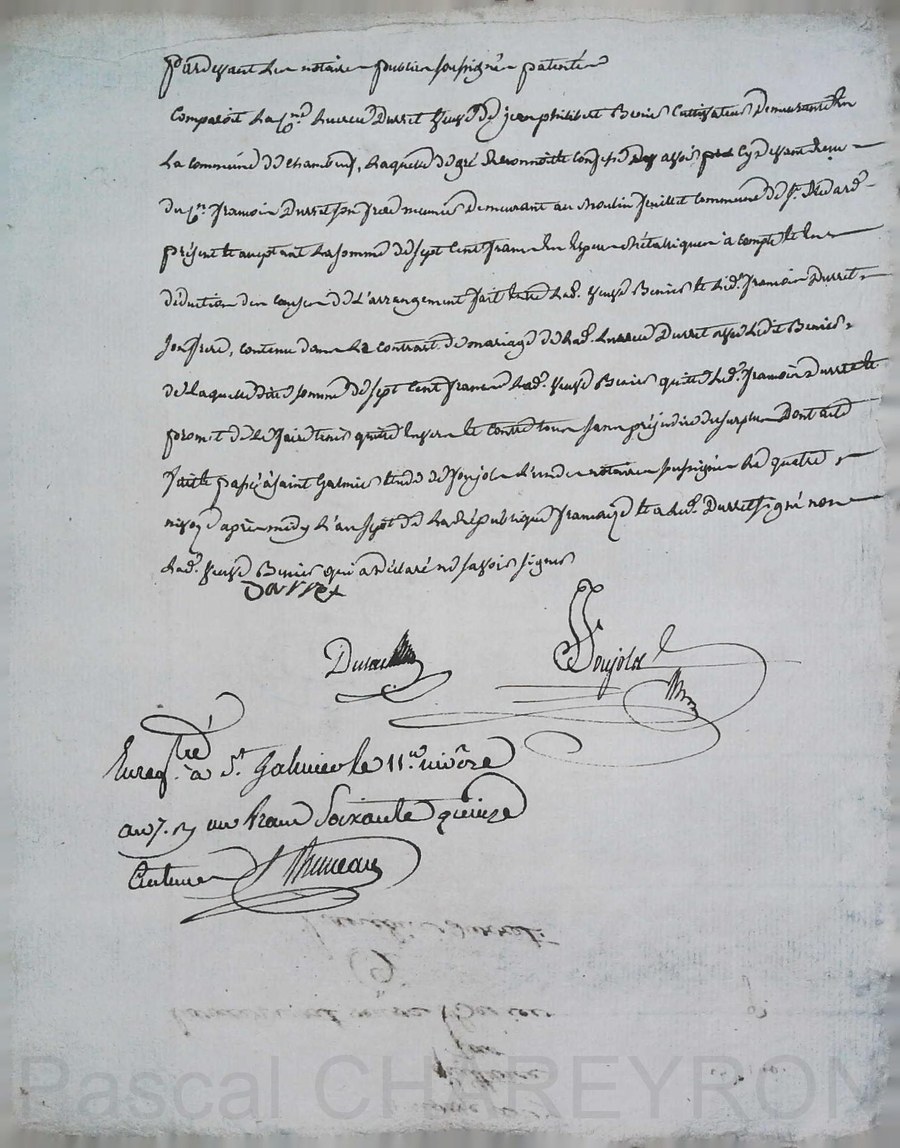 Pardevant les notaires publics soussignés patentés
Comparoit la Cnne. Lucrece Durret veuve de jean philibert Benier Cultivateur demeurante en
la commune de Chambeuf, laquelle de gré reconnoit et confesse avoir cy devant reçu
du Cn. francois Durret son frere meunier demeurant au Moulin Juillet commune de St. Medard
présent et acceptant la somme de sept cent francs en especes métalliques à compte et en
déduction des causes de l'arrangement fait entre lad. veuve Benier et led. francois Durret
son frere, contenu dans le contrat de mariage de lad. Lucrece Durret avec ledit Benier
de laquelle dite somme de sept cent francs lad. veuve Benier quitte led. francois Durret et
promet de le faire tenir quitte envers et contre tous sans préjudice du surplus Dont acte
fait et passé à saint Galmier etude de Soujolx l'un des notaires soussignés le quatre
nivose après midy l'an sept de la république française et a led. Durret signé non
lad. veuve Benier qui a déclaré ne savoir signer
Durret
Soujolx
Enregtré à St. Galmier le 11 nivôse
an 7. R un franc Soixante quinze
Centimes
Pascal CHAREYRON